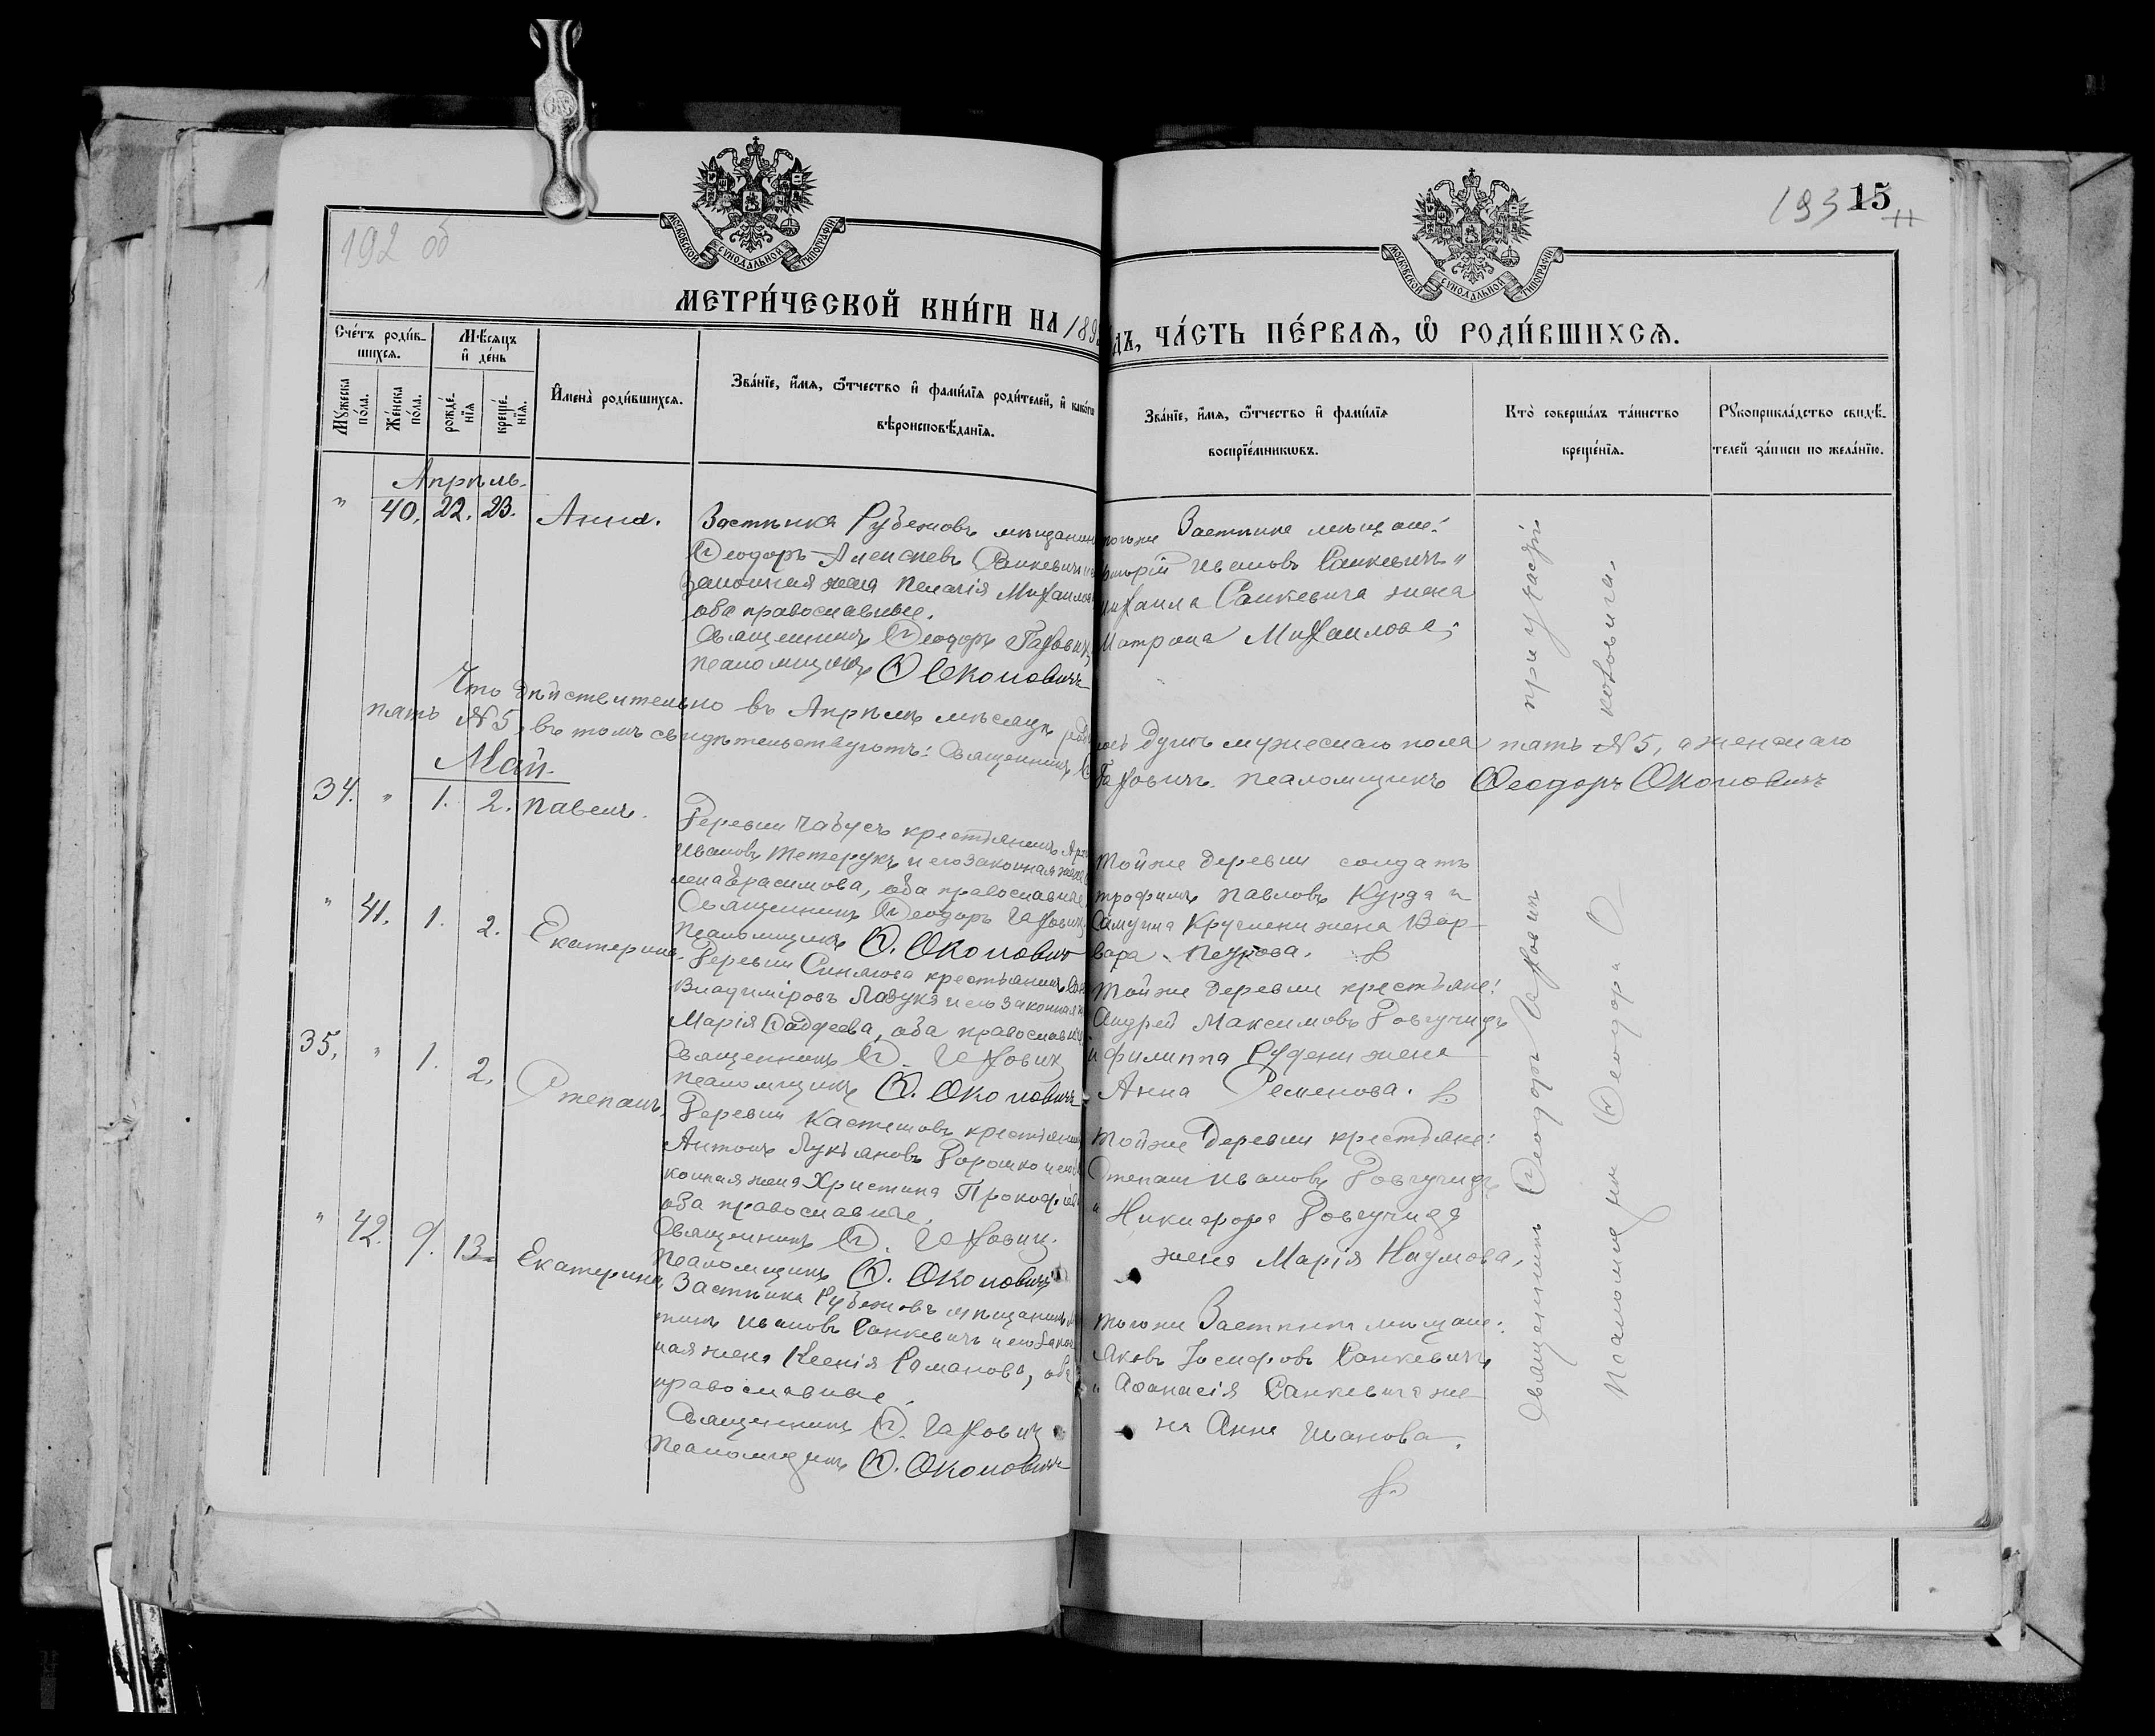 192 об
193 15
МОСКОВСКОЙ СѴНОДАЛЬНОЙ ТИПОГРАФІИ
МОСКОВСКОЙ СѴНОДАЛЬНОЙ ТИПОГРАФІИ
МЕТРИ́ЧЕСКОЙ КНИ́ГИ НА 189
ДЪ, ЧА́СТЬ ПЕ́РВАѦ, Ѽ РОДИ́ВШИХСѦ.
Сче́тъ роди́в-
шихсѧ.
Мꙋ́жеска по́ла.
Же́нска по́ла.
Мѣ́сѧцъ
и҆ де́нь
рожде́-
нїѧ
креще́-
нїѧ.
И҆мена̀ роди́вшихсѧ.
Зва́нїе, и҆́мѧ, ѿтчество и҆ фами́лїѧ роди́телей, и҆ како́гѡ
вѣроисповѣ́данїѧ.
Зва́нїе, и҆́мѧ, ѿтчество и҆ фами́лїѧ
воспрїе́мникѡвъ.
Кто̀ соверша́лъ та́инство
креще́нїѧ.
Рꙋкоприкла́дство свидѣ́-
телей за́писи по жела́нїю.
Апрѣль.
" 40. 22. 23. Анна.
Застѣнка Рубежовъ мѣщанин
Ѳеодоръ Алексѣевъ Санкевичъ
законная жена Пелагія Михаилов
оба православные.
Священникъ Ѳеодоръ Гахович
Псаломщикъ Ѳ Околовичъ
тогоже Застѣнка мѣщане:
Ивановъ Санкевичъ и
Михаила Санкевича жена
Матрона Михаилова.
Что дѣйствительно въ Апрѣлѣ мѣсяцѣ
ось душъ мужескаго пола пять №5, а женскаго
пять №5, въ томъ свидѣтельствуютъ: Священникъ Ѳ
Гаховичъ. Псаломщикъ Ѳеодоръ Околовичъ
Май.
34. " 1. 2. Павелъ.
Деревни Чабусъ крестьянинъ
Ивановъ Тетерукъ и его законная жена
Герасимова, оба православные.
Священникъ Ѳеодоръ Гахович
Псаломщикъ Ѳ. Околович
Тойже деревни солдатъ
Трофимъ Павловъ Курза и
Самуила Кручени жена Вар-
вара Петрова.
" 41. 1. 2. Екатерина.
Деревни Синягова крестьянинъ
Владиміровъ Лазука и его законная
Марія Ѳадѣева, оба православные
Священникъ Ѳ. Гахович
Псаломщикъ Ѳ. Околовичъ
Тойже деревни крестьяне:
Андрей Максимовъ Довгучицъ
и Филиппа Рудени жена
Анна Семенова.
35. " 1. 2. Степанъ.
Деревни Кастешовъ крестьянин
Антонъ Лукьяновъ Дорошко и его
конная жена Христина Прокофіев
оба православные.
Священникъ Ѳ. Гахович.
Псаломщикъ Ѳ. Околовичъ
Тойже деревни крестьяне:
Степанъ Ивановъ Довгучицъ
и Никифора Довгучица
жена Марія Наумова.
" 42. 9. 13. Екатерина.
Застѣнка Рубежовъ мѣщанинъ
Ивановъ Санкевичъ и его закон
ная жена Ксенія Романова, оба
православные.
Священникъ Ѳ. Гахович
Псаломщикъ Ѳ. Околовичъ
Тогоже Застѣнка мѣщане:
Яковъ Іосифовъ Санкевичъ
и Аѳанасія Санкевича же-
на Анна Иванова.
Священникъ Ѳеодоръ Гаховичъ при участіи
Псаломщика Ѳеодора Околовича.